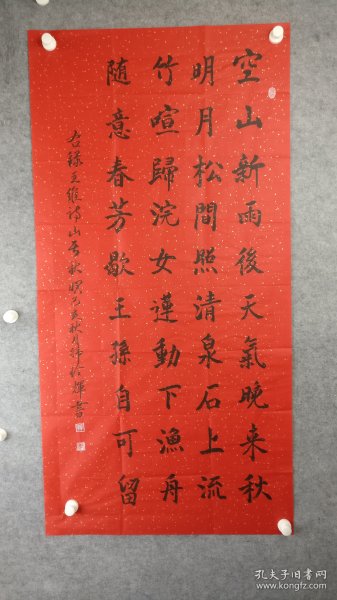 空山新雨後天氣晚来秋
明月松間照清泉石上流
竹喧歸浣女蓮動下漁舟
随意春芳歇王孫自可留
右録王維詩山居秋暝己亥秋月
書
孔夫子旧书网